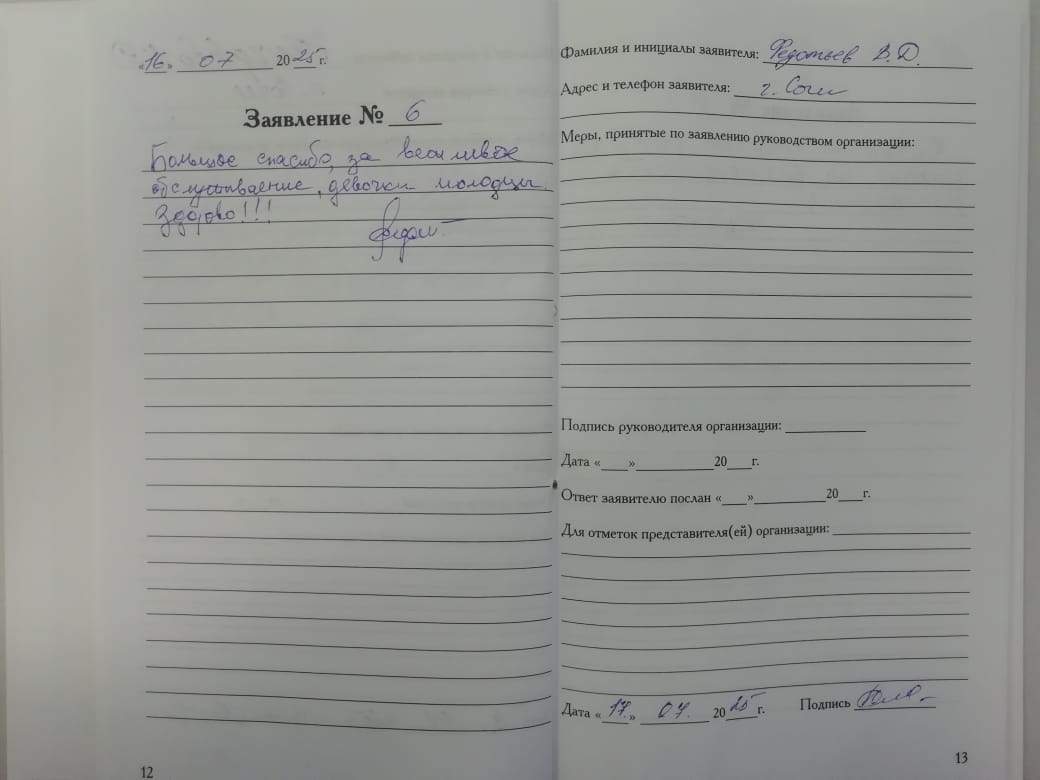 «16» 07 2025 г.
Заявление № 6
Большое спасибо, за вежливое
обслуживаение, девочки молодцы
Здорово!!!
12
Фамилия и инициалы заявителя: Федотьев В.Д.
Адрес и телефон заявителя: г. Сочи
Меры, принятые по заявлению руководством организации:
Подпись руководителя организации:
Дата «___»___________20___г.
Ответ заявителю послан «___»__________20___г.
Для отметок представителя(ей) организации:
Дата «17.» 07. 2025 г. Подпись
13